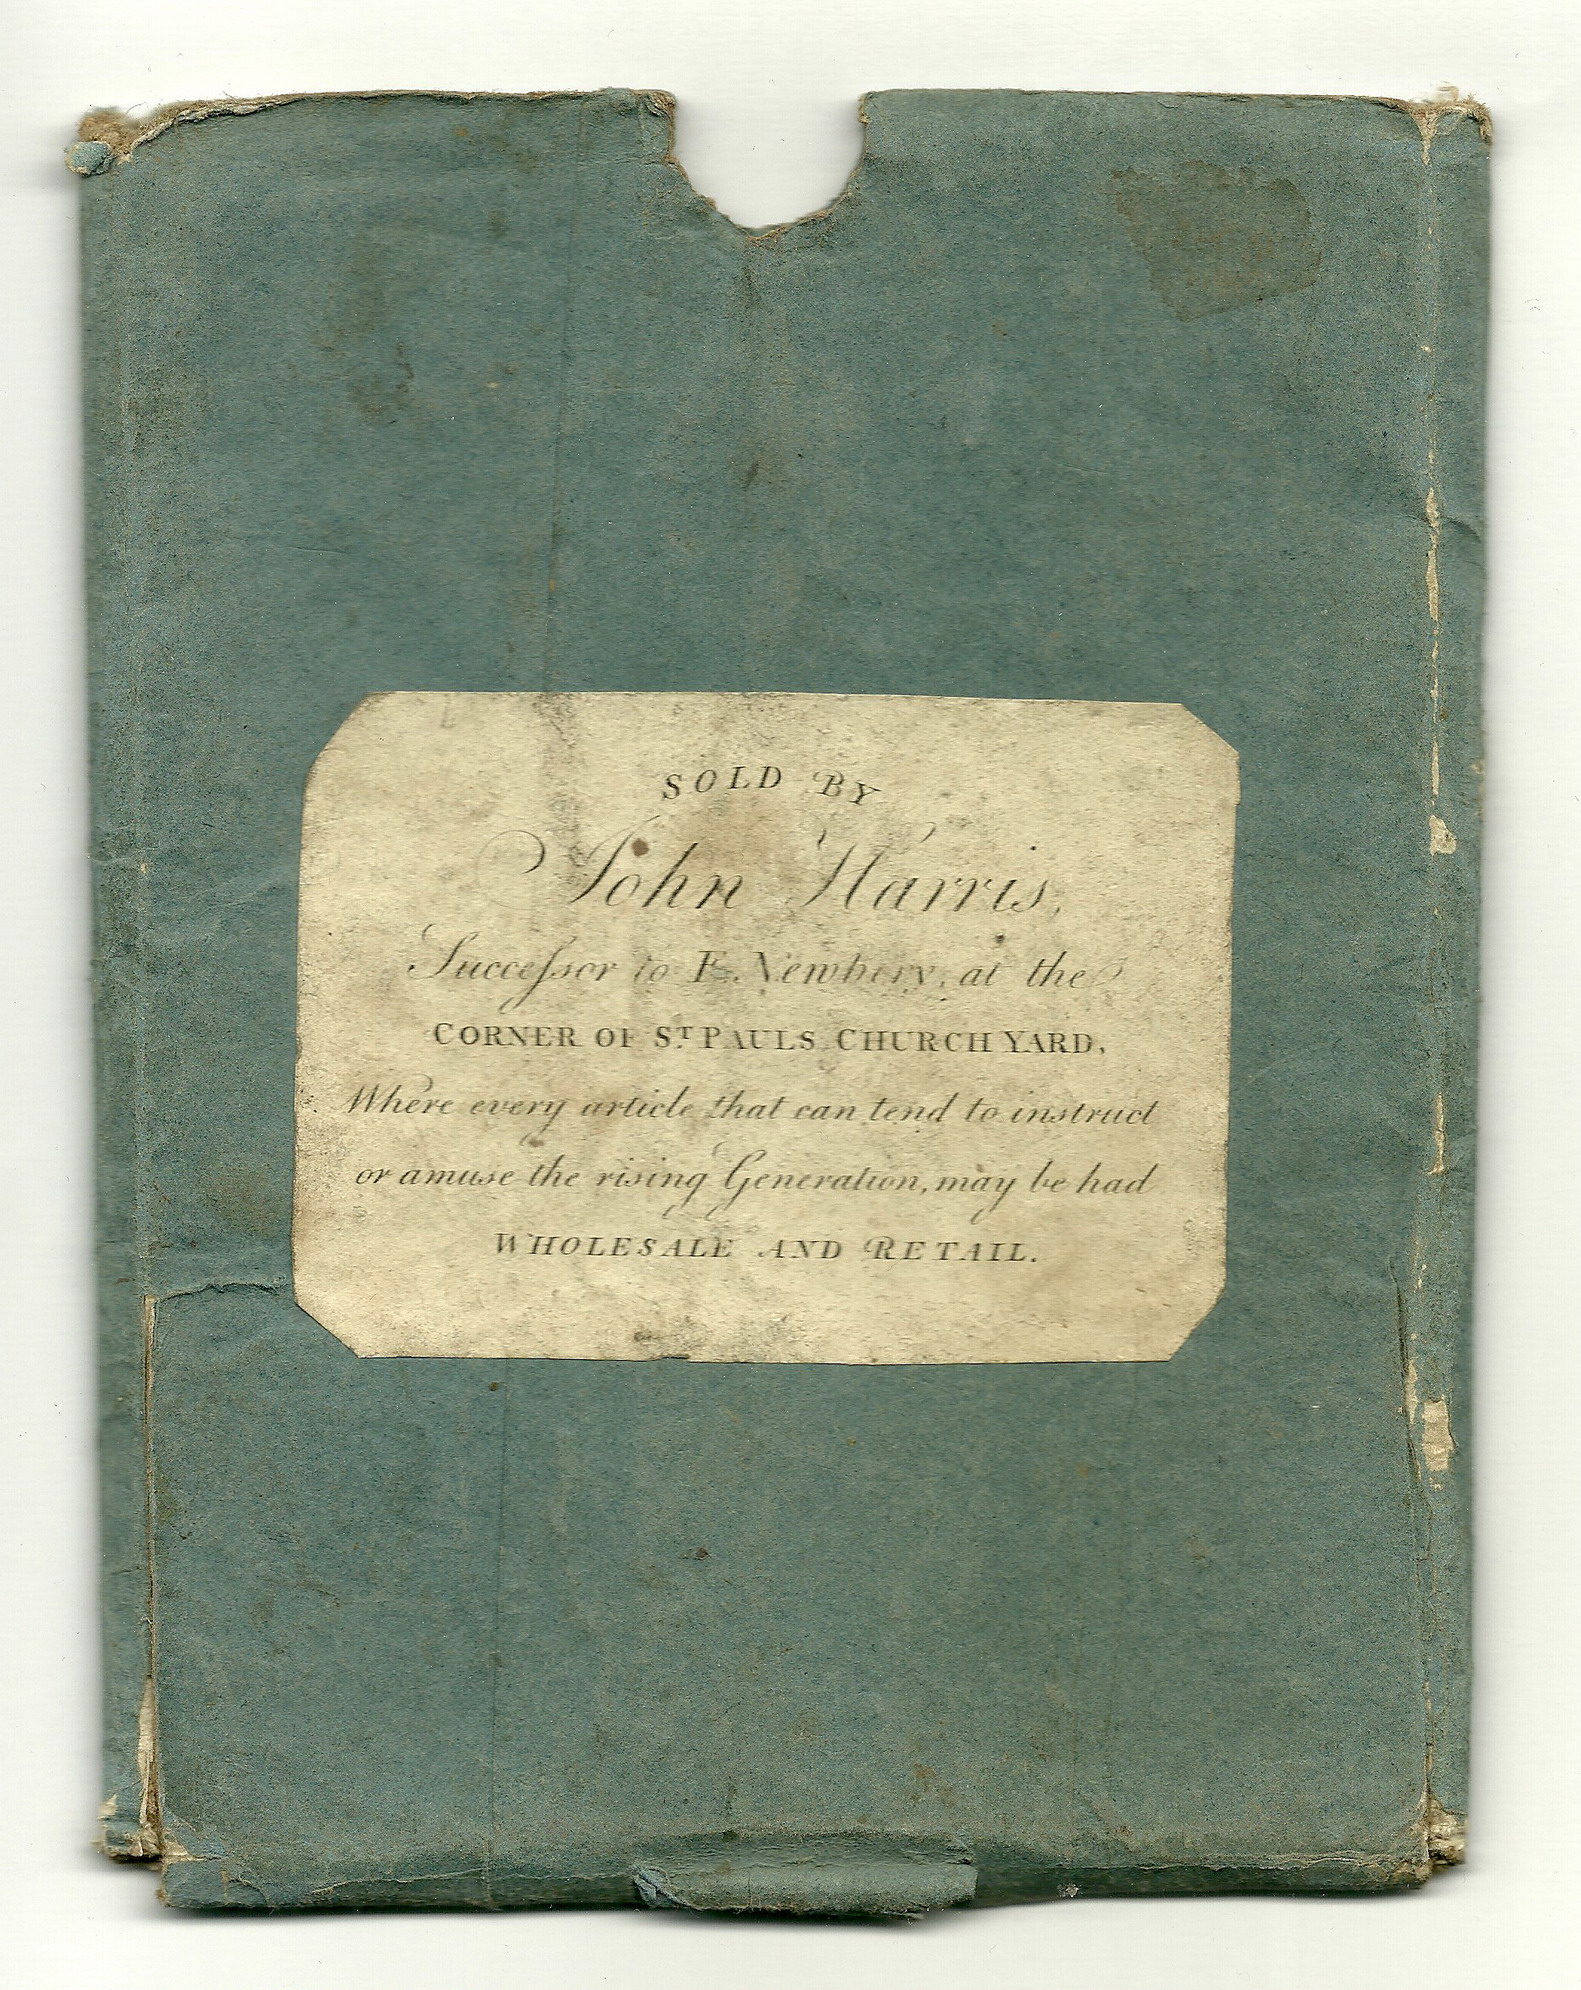 SOLD BY
John Harris,
Succeſsor to E. Newbery, at the
CORNER OF S.T PAULS CHURCH YARD,
Where every article that can tend to instruct
or amuse the rising Generation, may be had
WHOLESALE AND RETAIL.